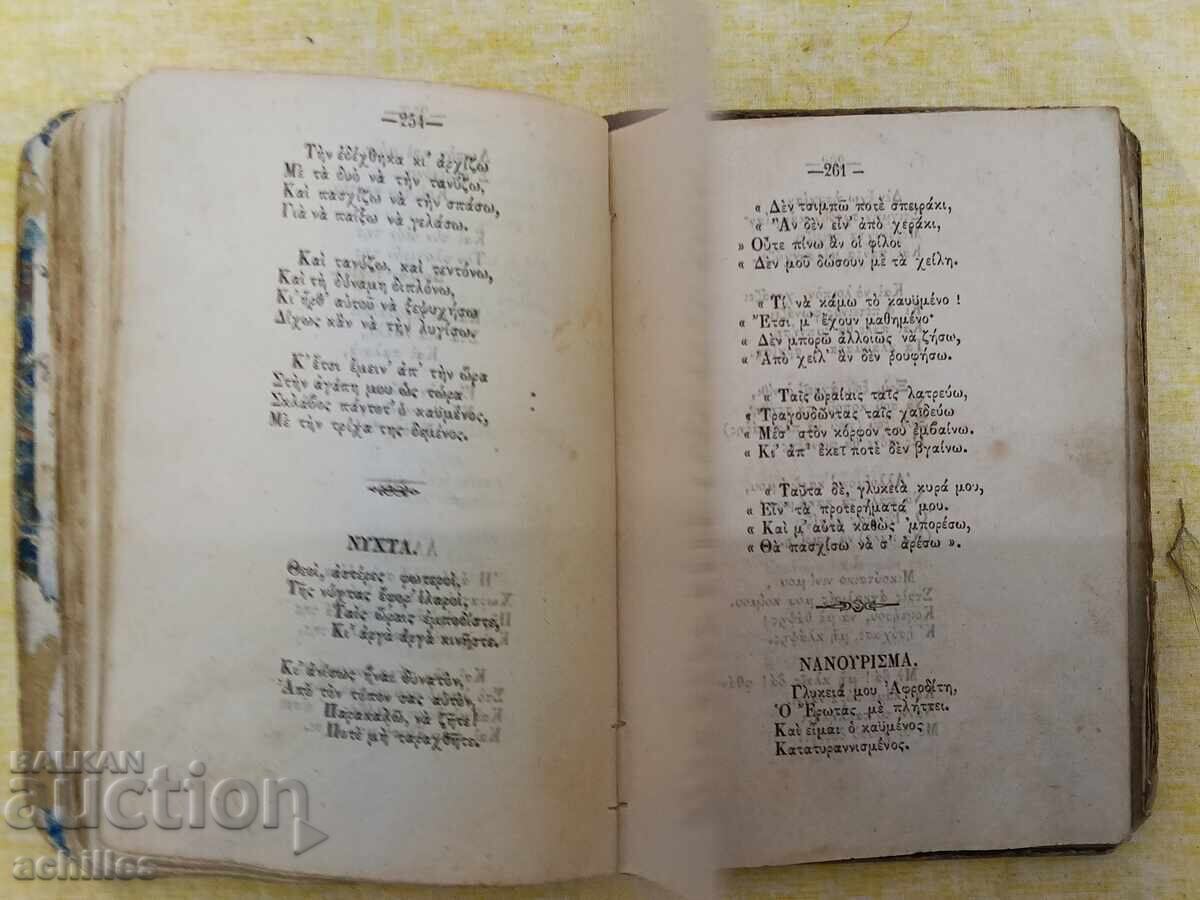 —254—
Τὴν ἐδέχθηκα κι' ἀρχίζω
Μὲ τὰ δυὸ νὰ τὴν τανύζω,
Καὶ πασχίζω νὰ τὴν σπάσω,
Γιὰ νὰ παίξω νὰ γελάσω.
Καὶ τανύζω, καὶ τεντόνω,
Καὶ τὴ δύναμη διπλόνω,
Κι' ἦρθ' αὐτοῦ νὰ ξεψυχήσω
Δίχως κᾂν νὰ τὴν λυγίσω.
Κ' ἔτσι ἔμειν' ἀπ' τὴν ὥρα
Στὴν ἀγάπη μου ὡς τώρα
Σκλάβος πάντοτ' ὁ καϋμένος,
Μὲ τὴν τρίχα της δεμένος.
ΝΥΧΤΑ.
Θεοὶ, ἀστέρες φωτεροὶ,
Τῆς νύφτας ἔφορ' ἱλαροὶ,
Ταῖς ὥραις ἐμποδίστε,
Κι' ἀργὰ ἀργὰ κινῆστε.
Κι' ἀνίσως ἦναι δυνατὸν,
Ἀπὸ τὸν τόπον σας αὐτὸν,
Παρακαλῶ, νὰ ζῆτε
Ποτὲ μὴ ταραχθῆτε.
—261-
« Δὲν τσιμπῶ ποτὲ σπειράκι,
« Ἂν δὲν εἶν' ἀπὸ χεράκι,
» Οὔτε πίνω ἂν οἱ φίλοι
« Δὲν μοῦ δώσουν μὲ τὰ χείλη.
« Τί νὰ κάμω τὸ καϋμένο !
« Ἔτσι μ' ἔχουν μαθημένο·
« Δὲν μπορῶ ἀλλοιῶς νὰ ζήσω,
« Ἀπὸ χεῖλ' ἂν δὲν ῥουφήσω.
« Ταῖς ὡραίαις ταῖς λατρεύω,
« Τραγουδῶντας ταῖς χαϊδεύω
« Μέσ' στὸν κόρφον του ἐμβαίνω.
« Κι' ἀπ' ἐκεῖ ποτὲ δὲν βγαίνω.
« Ταῦτα δὲ, γλυκειὰ κυρά μου,
« Εἶν' τὰ προτερήματά μου.
« Καὶ μ' αὐτὰ καθὼς 'μπορέσω,
« Θὰ πασχίσω νὰ σ' ἀρέσω ».
ΝΑΝΟΥΡΙΣΜΑ.
Γλυκειά μου Ἀφροδίτη,
Ὁ Ἔρωτας μὲ πλήττει.
Καὶ εἶμαι ὁ καϋμένος
Κατατυραννισμένος.
BALKAN
auction
achilles